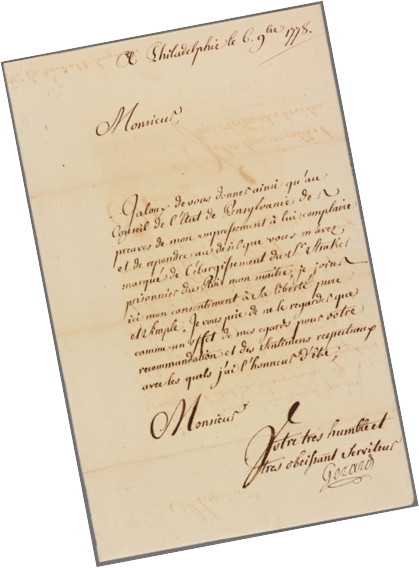 A Philadelphie le 6. 9bre 1778.
Monsieur
Jaloux de vous donner ainsi qu'au
Conseil de l'Etat de Pensylvanie des
preuves de mon empressement à lui complaire
et de repondre au desir que vous m'avez
marqué de l'élargissement du Sr.
prisonnier du Roi mon maitre, je joins
ici mon consentement à sa liberté pure
et simple. Je vous prie de ne le regarder que
comme un effet de mes egards pour votre
recommandation et des sentimens respectueux
avec les quels j'ai l'honneur d'être,
Monsieur
Votre très humble et
très obeissant Serviteur
Gerard